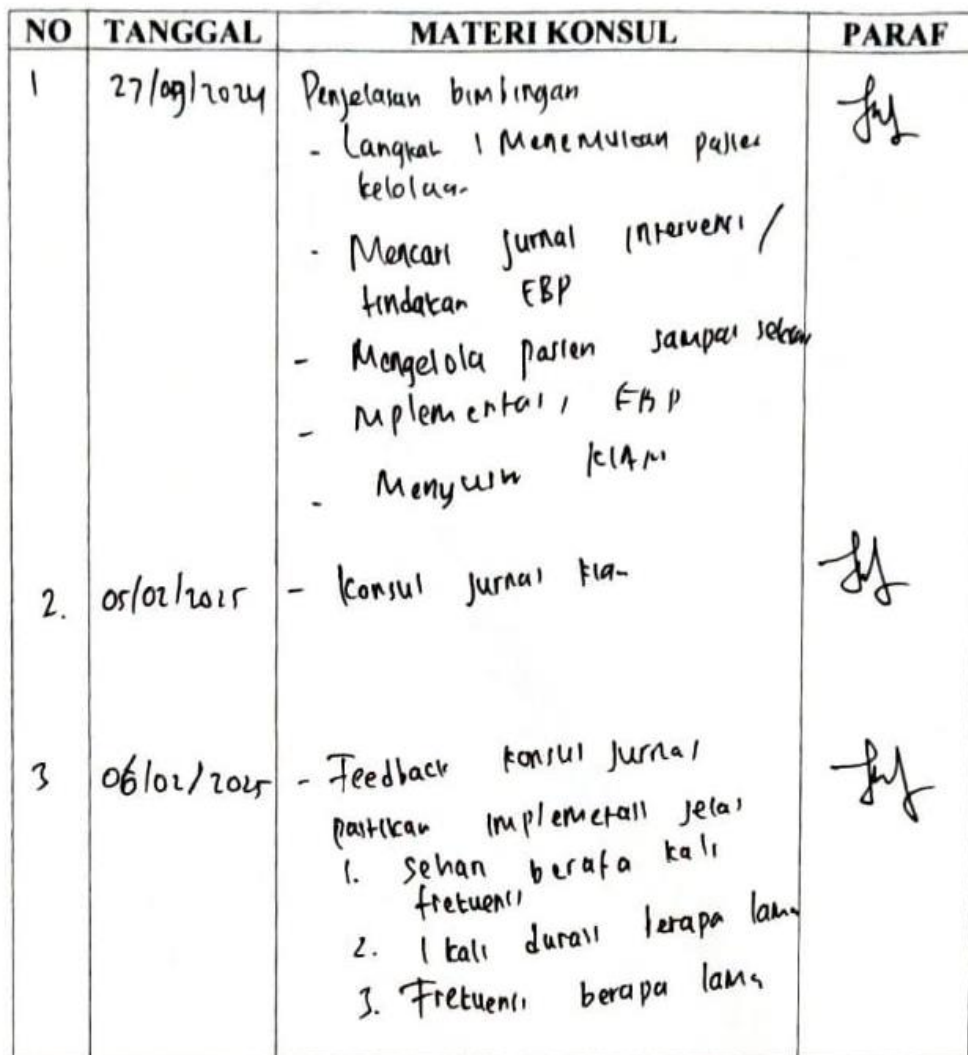 NO TANGGAL MATERI KONSUL PARAF
1 27/09/2024 Penjelasan bimbingan
- Langkah 1 Menemukan pasien
kelolaan
- Mencari jurnal intervensi /
tindakan EBP
- Mengelola pasien sampai
- Implementasi EBP
- Menyusun KIAN
2. 05/02/2025 - Konsul jurnal kian
3 06/02/2025 - Feedback konsul jurnal
pastikan implementasi jelas
1. sehari berapa kali
frekuensi
2. 1 kali durasi berapa lama
3. Frekuensi berapa lama